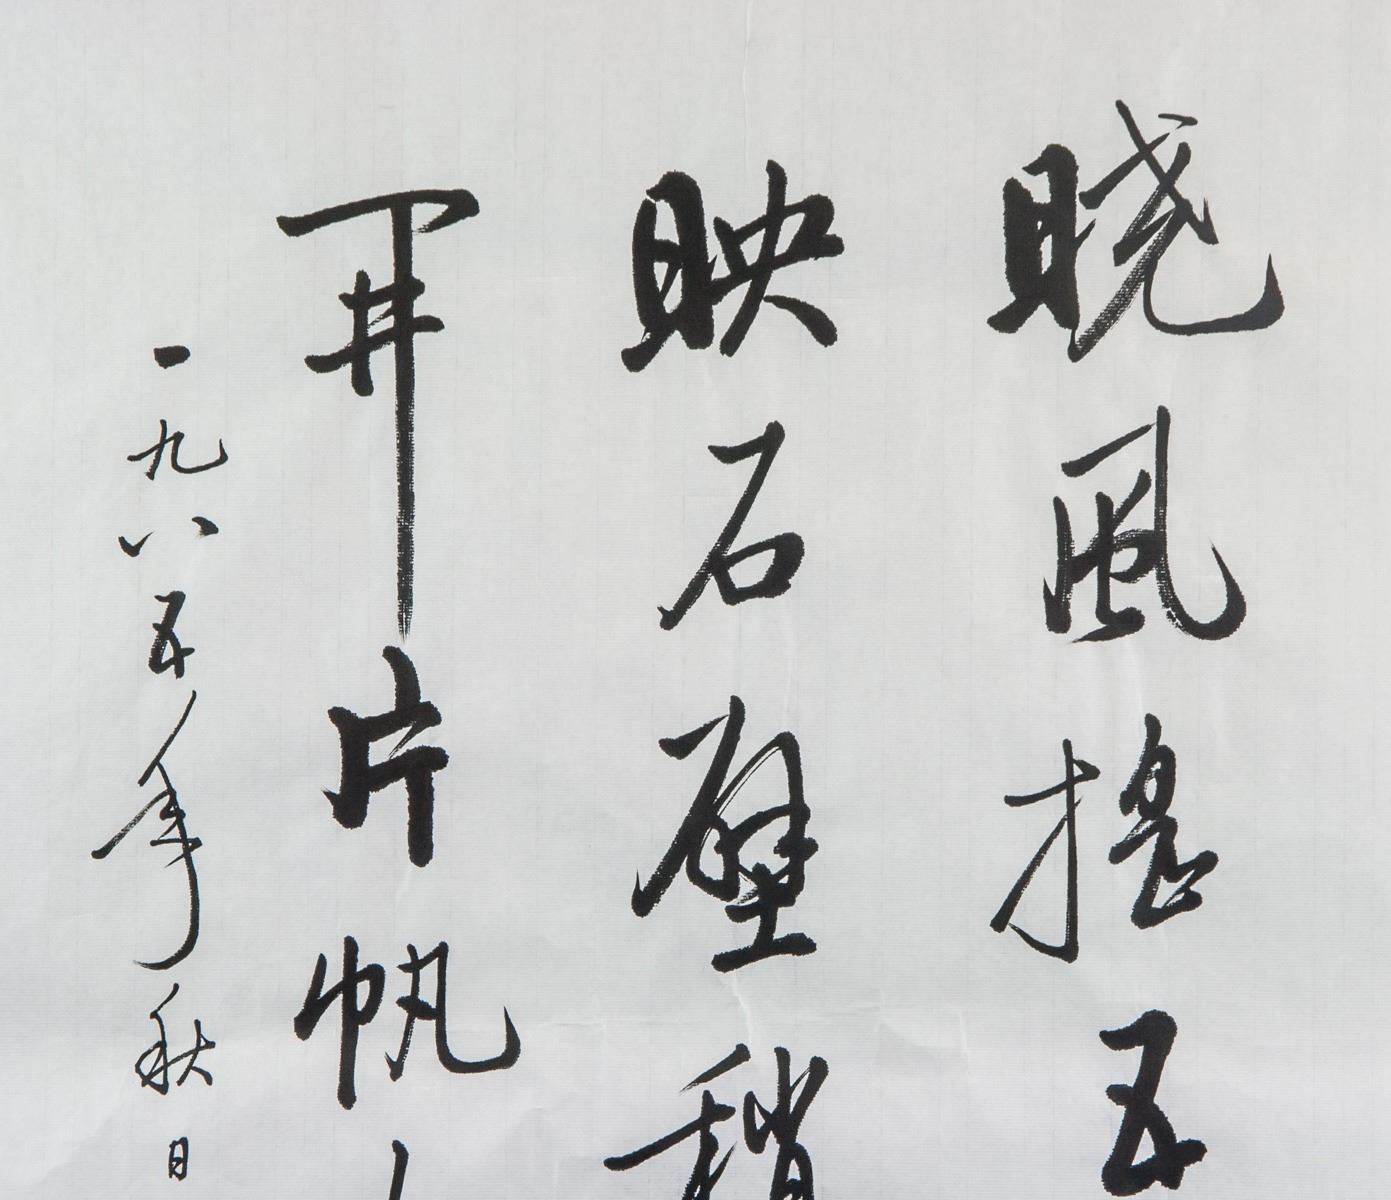 晓風搖五
映石壁稍
開片帆
一九八五年秋日